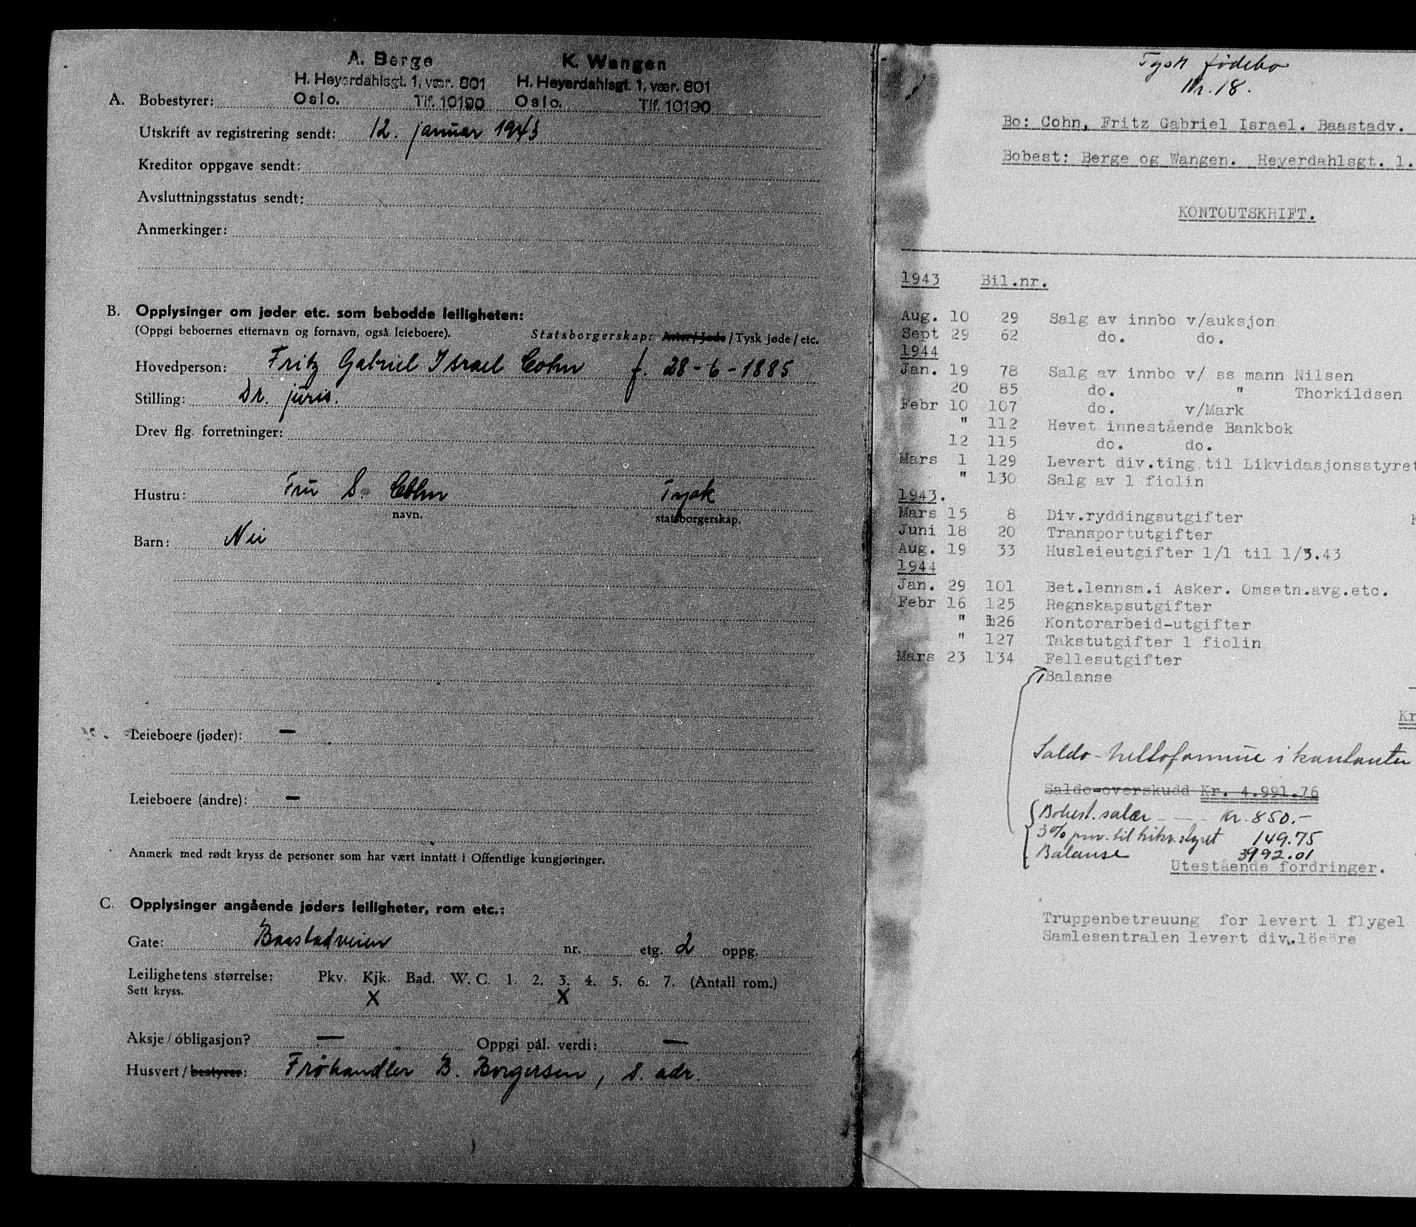 A. Berge K. Wangen
H. Heyerdahlsgt. 1, vær. 801 H. Heyerdahlsgt. 1, vær. 801
A. Bobestyrer: Oslo. Tlf. 10190 Oslo. Tlf. 10190
Utskrift av registrering sendt: 12. januar 1943
Kreditor oppgave sendt:
Avsluttningsstatus sendt:
Anmerkinger:
B. Opplysinger om jøder etc. som bebodde leiligheten:
(Oppgi beboernes etternavn og fornavn, også leieboere). Statsborgerskap: /Tysk jøde/etc.
Hovedperson: Fritz Gabriel Israel Cohn f. 28-6-1885
Stilling: Dr. juris.
Drev flg. forretninger:
Hustru: Fru S. Cohn Tysk
navn. statsborgerskap.
Barn: Nei
Leieboere (jøder): —
Leieboere (andre): —
Anmerk med rødt kryss de personer som har vært inntatt i Offentlige kungjøringer.
C. Opplysinger angående jøders leiligheter, rom etc.:
Gate: Baastadveien nr. etg. 2 oppg.
Leilighetens størrelse: Pkv. Kjk. Bad. W.C. 1. 2. 3. 4. 5. 6. 7. (Antall rom.)
Sett kryss. X X
Aksje/obligasjon? — Oppgi pål. verdi: —
Husvert/bestyrer: Frøhandler B. Borgersen, s. adr.
Tysk jødebo
Nr. 18.
Bo: Cohn, Fritz Gabriel Israel. Baastadv.
Bobest: Berge og Wangen. Heyerdahlsgt. 1.
KONTOUTSKRIFT.
1943 Bil.nr.
Aug. 10 29 Salg av innbo v/auksjon
Sept 29 62 do. do.
1944
Jan. 19 78 Salg av innbo v/ ss mann Nilsen
20 85 do. " Thorkildsen
Febr 10 107 do. v/Mark
" 112 Hevet innestående Bankbok
12 115 do. do.
Mars 1 129 Levert div.ting til Likvidasjonsstyret
" 130 Salg av 1 fiolin
1943.
Mars 15 8 Div.ryddingsutgifter
Juni 18 20 Transportutgifter
Aug. 19 33 Husleieutgifter 1/1 til 1/3.43
1944
Jan. 29 101 Bet.lennsm.i Asker. Omsetn.avg.etc.
Febr 16 125 Regnskapsutgifter
" 126 Kontorarbeid-utgifter
" 127 Takstutgifter 1 fiolin
Mars 23 134 Fellesutgifter
Balanse
Kr
Saldo-nettoformue i kontanter
Saldo-overskudd Kr. 4.991.76
Bobest. salær - - - Kr. 850.-
3% prov. til likv. styret 149.75
Balanse 3992.01
Utestående fordringer.
Truppenbetreuung for levert 1 flygel
Samlesentralen levert div.lösöre